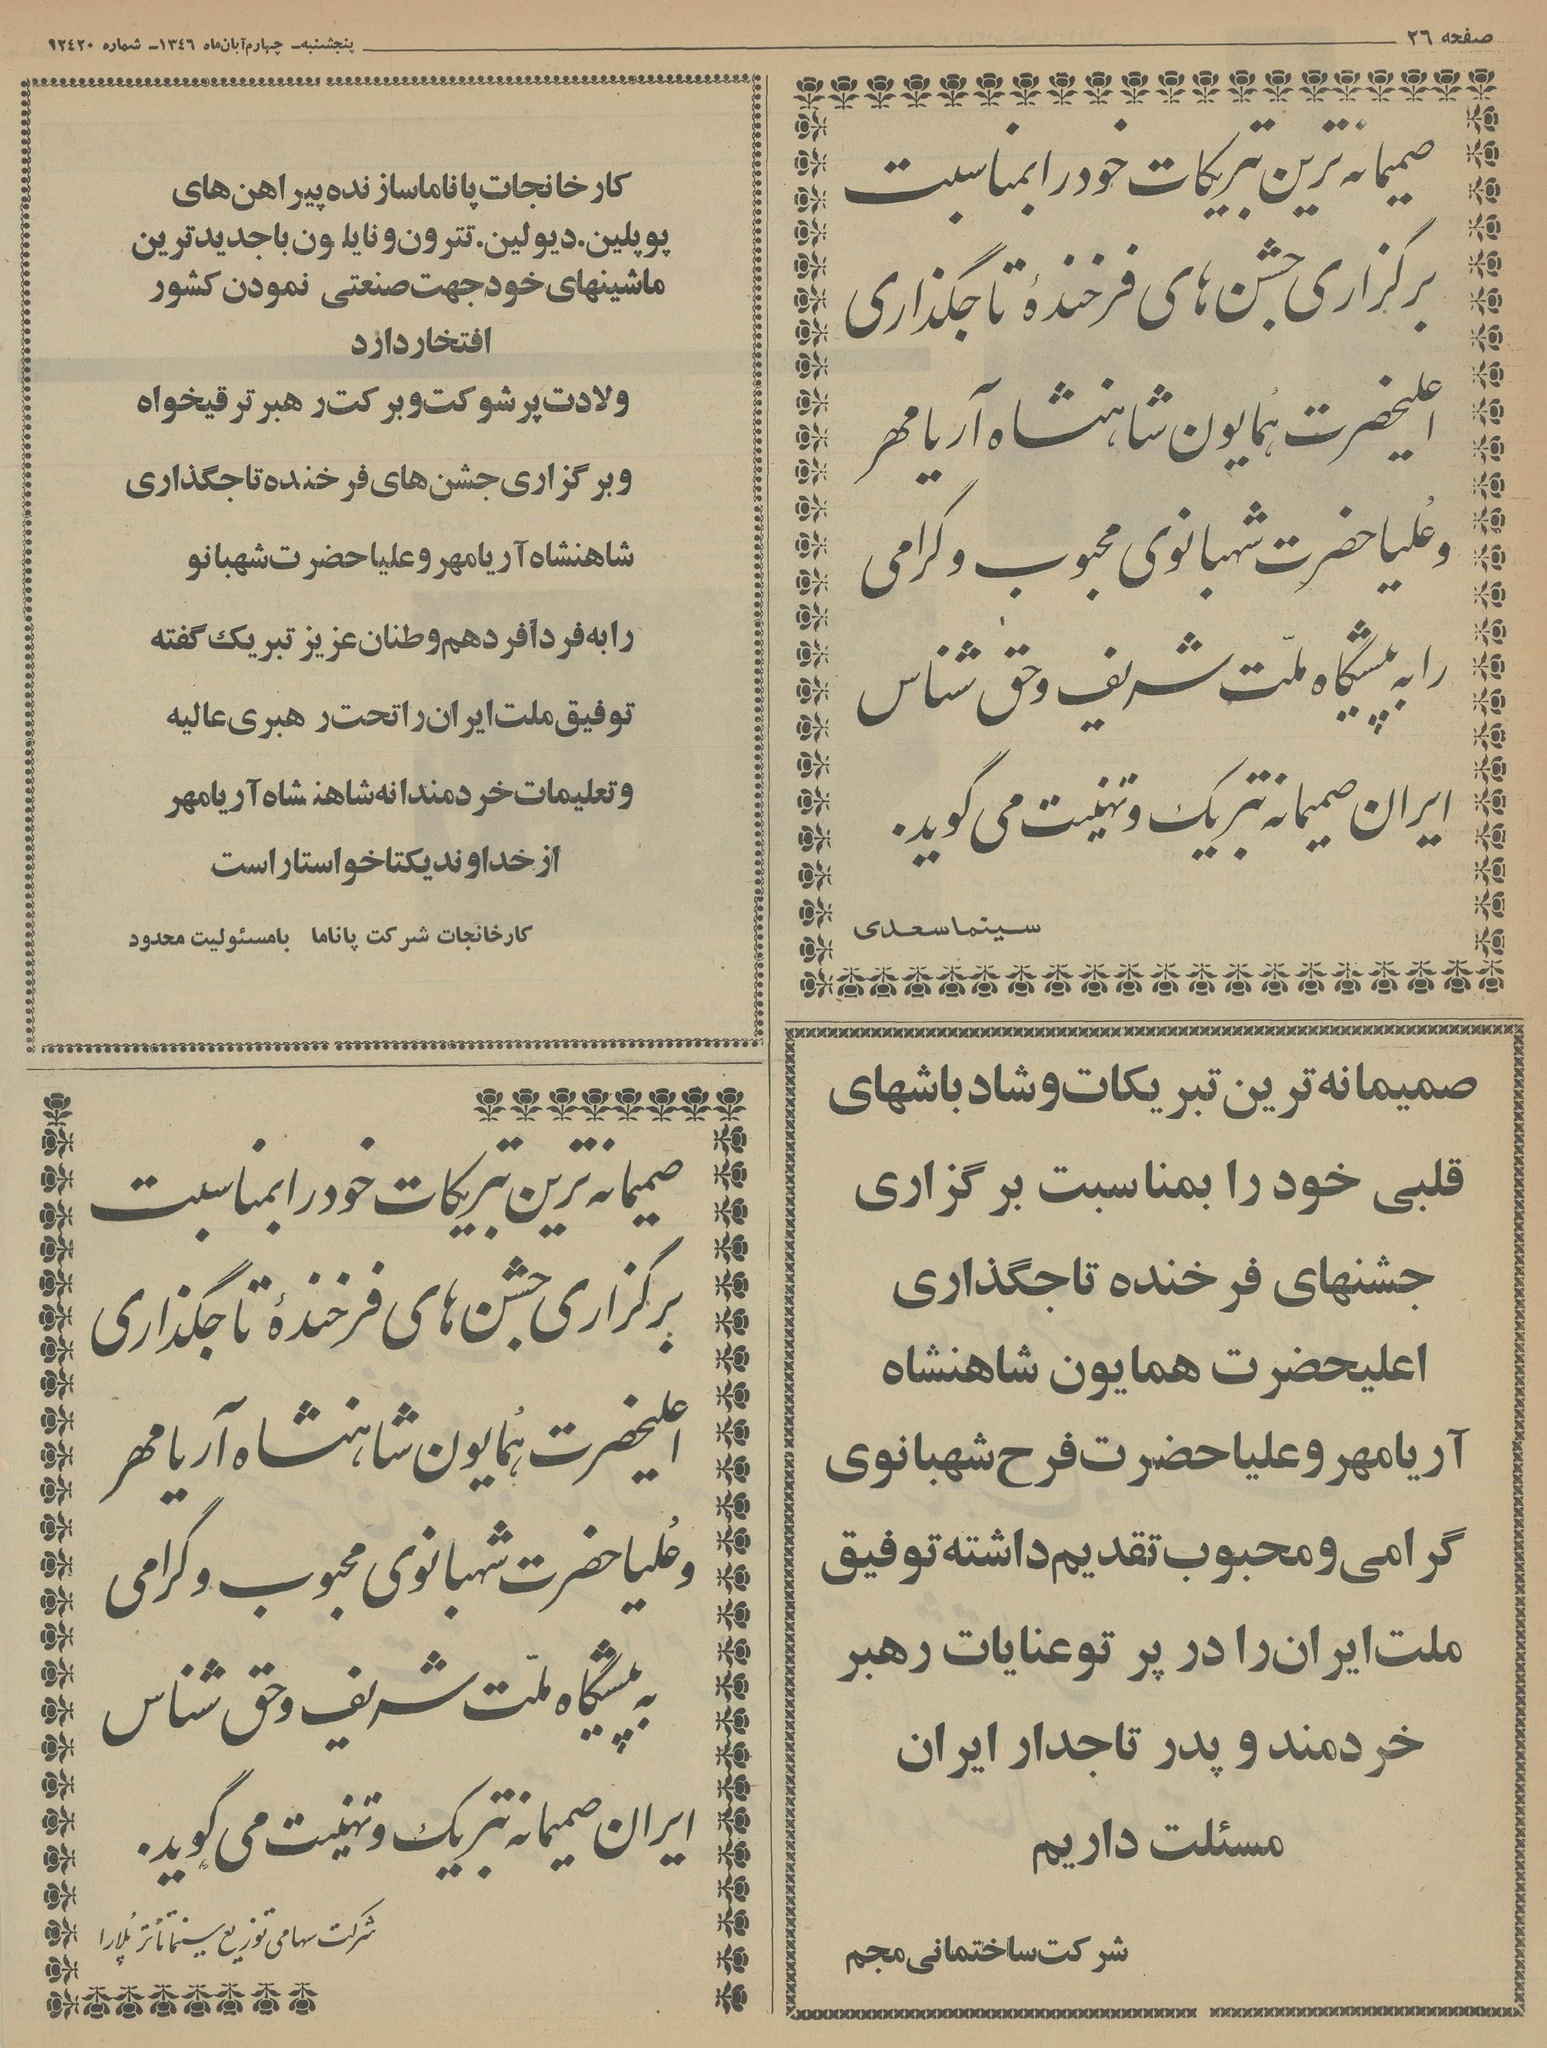 صفحه ۲۶
پنجشنبه- چهارم آبان ماه ۱۳۴۶- شماره ۹۲۴۲۰
صمیمانه ترین تبریکات خود را بمناسبت
برگزاری جشن های فرخندهٔ تاجگذاری
اعلیحضرت همایون شاهنشاه آریامهر
و علیاحضرت شهبانوی محبوب و گرامی
را به پیشگاه ملّت شریف و حق شناس
ایران صمیمانه تبریک و تهنیت می گوید.
سینما سعدی
کارخانجات پاناما سازنده پیراهن های
پوپلین. دیولین. تترون و نایلون با جدیدترین
ماشینهای خود جهت صنعتی نمودن کشور
افتخار دارد
ولادت پر شوکت و برکت رهبر ترقیخواه
و برگزاری جشن های فرخنده تاجگذاری
شاهنشاه آریامهر و علیاحضرت شهبانو
را به فرداً فرد هموطنان عزیز تبریک گفته
توفیق ملت ایران را تحت رهبری عالیه
و تعلیمات خردمندانه شاهنشاه آریامهر
از خداوند یکتا خواستار است
کارخانجات شرکت پاناما بامسئولیت محدود
صمیمانه ترین تبریکات و شادباشهای
قلبی خود را بمناسبت برگزاری
جشنهای فرخنده تاجگذاری
اعلیحضرت همایون شاهنشاه
آریامهر و علیاحضرت فرح شهبانوی
گرامی و محبوب تقدیم داشته توفیق
ملت ایران را در پرتو عنایات رهبر
خردمند و پدر تاجدار ایران
مسئلت داریم
شرکت ساختمانی مجم
صمیمانه ترین تبریکات خود را بمناسبت
برگزاری جشن های فرخندهٔ تاجگذاری
اعلیحضرت همایون شاهنشاه آریامهر
و علیاحضرت شهبانوی محبوب و گرامی
به پیشگاه ملّت شریف و حق شناس
ایران صمیمانه تبریک و تهنیت می گوید.
شرکت سهامی توزیع سینما تأتر پُلارا